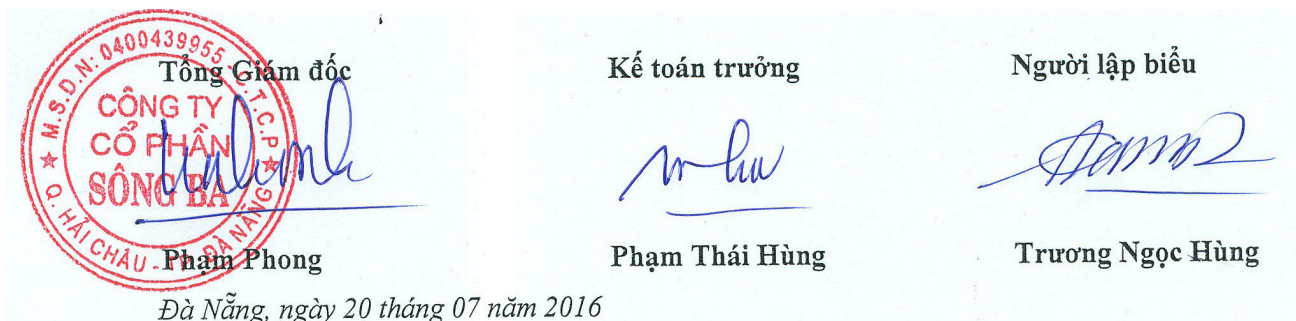 M.S.D.N: 0400439955 - C.T.C.P
CÔNG TY
CỔ PHẦN
SÔNG BA
Q. HẢI CHÂU - TP. ĐÀ NẴNG
Tổng Giám đốc
Kế toán trưởng
Người lập biểu
Phạm Phong
Phạm Thái Hùng
Trương Ngọc Hùng
Đà Nẵng, ngày 20 tháng 07 năm 2016